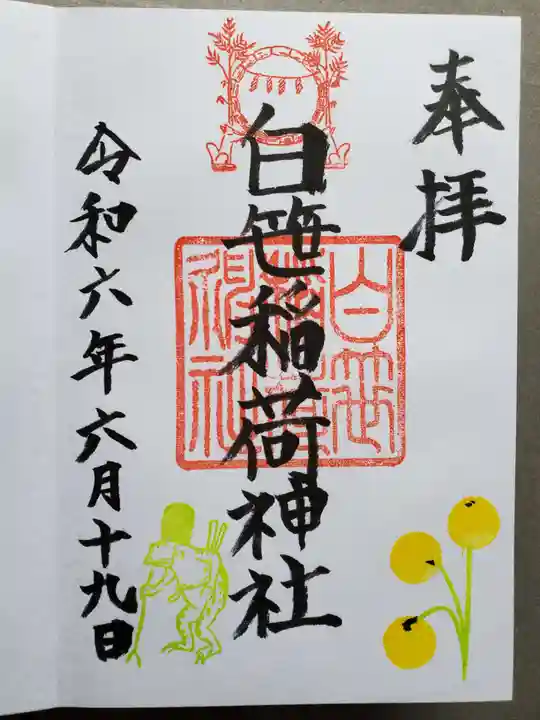 奉拝
白笹稲荷神社
白笹稲荷神社
令和六年六月十九日